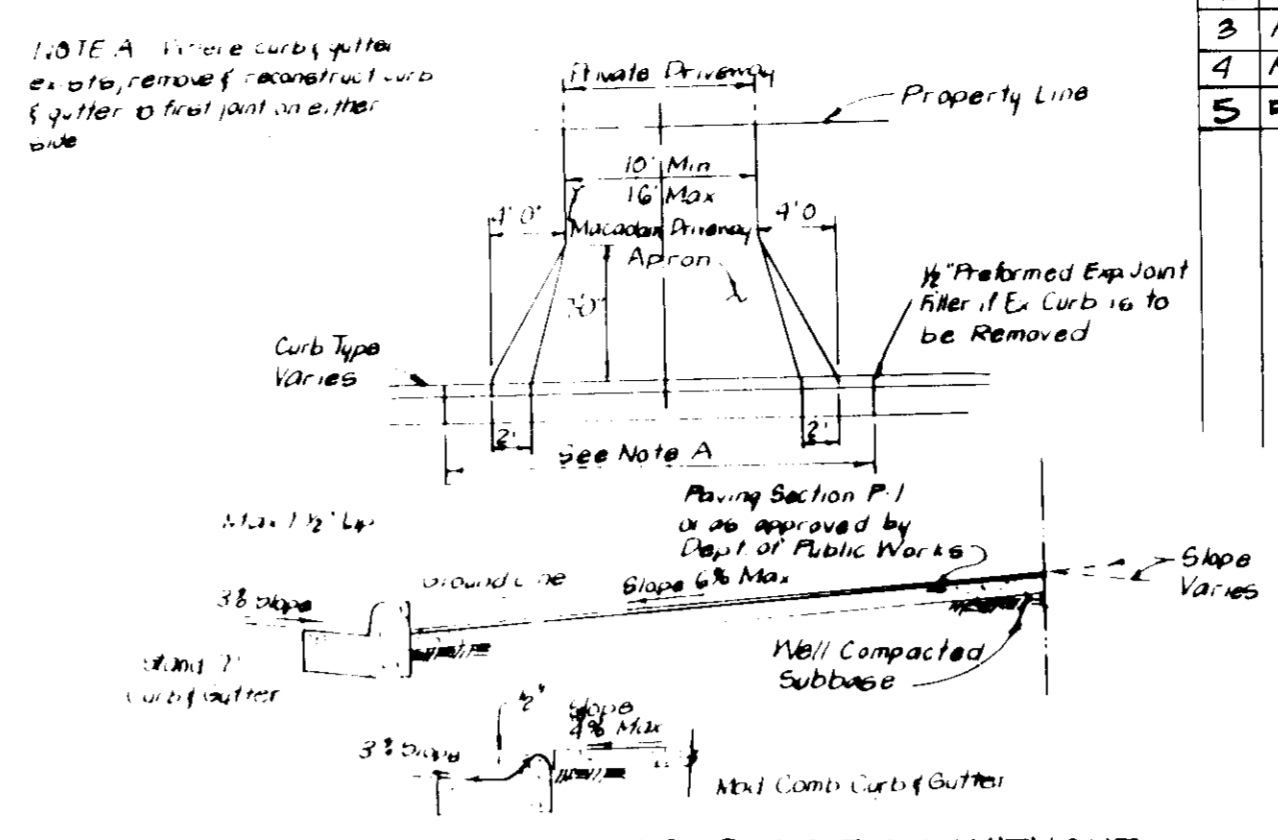 NOTE A Where curb & gutter
exists, remove & reconstruct curb
& gutter to first joint on either
side
Private Driveway
Property Line
10' Min
16' Max
4'0"
4'0
Macadam Driveway
Apron
½" Preformed Exp Joint
Filler if Ex Curb is to
be Removed
Curb Type
Varies
2'
2'
See Note A
Paving Section P-1
or as approved by
Dept. of Public Works
Max 1½" Lip
Ground Line
Slope 6% Max
Slope
Varies
3% Slope
Stand 7"
Curb & Gutter
Well Compacted
Subbase
Slope
4% Max
3% Slope
Mod Comb Curb & Gutter
3
4
5